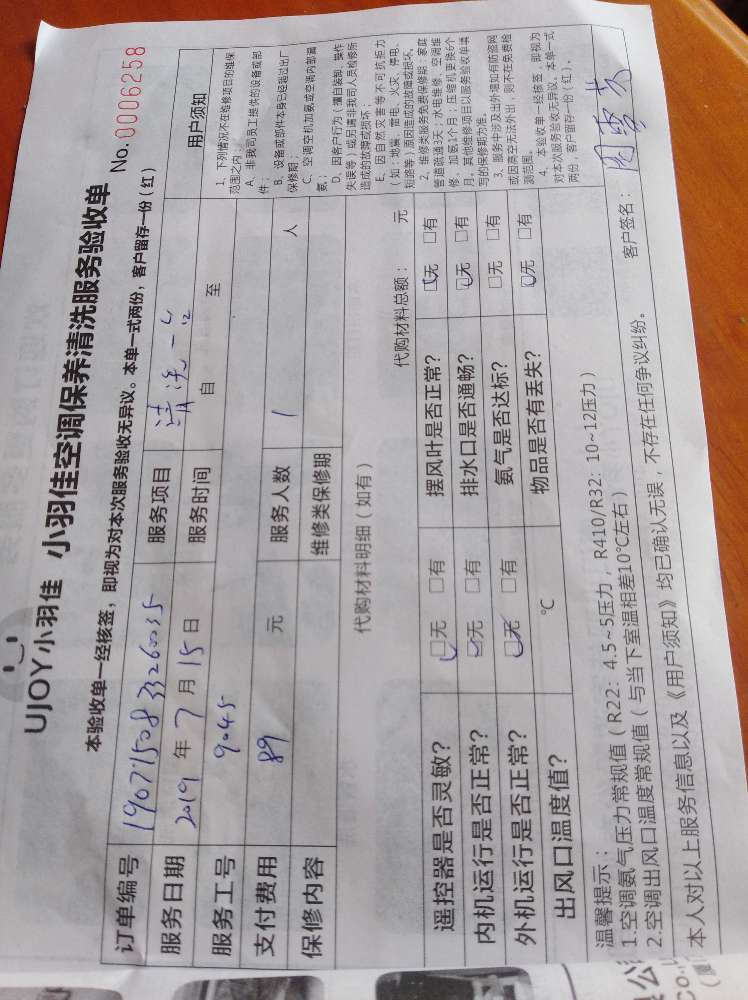 UJOY小羽佳 小羽佳空调保养清洗服务验收单
No. 0006258
本验收单一经核签，即视为对本次服务验收无异议。本单一式两份，客户留存一份（红）
订单编号 1907150833260035 服务项目 清洗一台
服务日期 2019 年 7 月 15 日 服务时间 自 至
服务工号 9045
支付费用 89 元 服务人数 1 人
保修内容 维修类保修期
用户须知
1、下列情况不在维修项目的维保
范围之内：
A、非我司员工提供的设备或部
件；
B、设备或部件本身已经超过出厂
保修期；
C、空调空机加氨或空调内部漏
氨；
D、因客户行为（擅自装卸、操作
失误等）或另请非我司人员检修所
造成的故障或损坏；
E、因自然灾害等不可抗拒力
（如：地震、雷电、火灾、停电、
短路等）原因造成的故障或损坏。
2、维修类服务免费保修期：家庭
管道疏通3天；水电维修、空调维
修、加氨3个月；压缩机更换6个
月。其他维修项目以服务验收单填
写的保修期为准。
3、服务中涉及出外墙如有防盗网
或因悬空无法外出，则不在免费检
测范围。
4、本验收单一经核签，即视为
对本次服务验收无异议。本单一式
两份，客户留存一份（红）。
代购材料明细（如有）
代购材料总额： 元
遥控器是否灵敏？ □无 □有 摆风叶是否正常？ □无 □有
内机运行是否正常？ □无 □有 排水口是否通畅？ □无 □有
外机运行是否正常？ □无 □有 氨气是否达标？ □无 □有
出风口温度值？ ℃ 物品是否有丢失？ □无 □有
温馨提示：
1.空调氨气压力常规值（R22：4.5~5压力，R410/R32：10~12压力）
2.空调出风口温度常规值（与当下室温相差10℃左右）
本人对以上服务信息以及《用户须知》均已确认无误，不存在任何争议纠纷。
客户签名：
公
co.,u